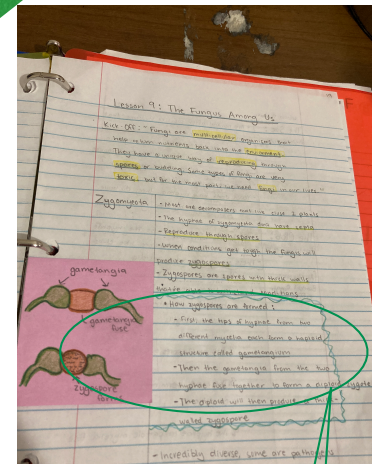 Lesson 9: The Fungus Among Us
Kick Off: "Fungi are multicellular organisms that
help return nutrients back into the environment.
They have a unique way of reproducing through
spores or budding. Some types of fungi are very
toxic, but for the most part, we need fungi in our lives."
Zygomycota - Most are decomposers that live close to plants
- The hyphae of zygomycota don't have septa
- Reproduce through spores
- When conditions get tough the fungus will
produce zygospores
- Zygospores are spores with thick walls
conditions
• How zygospores are formed:
• First, the tips of hyphae from two
different mycelia each form a haploid
structure called gametangium
• Then the gametangia from the two
hyphae fuse together to form a diploid zygote
• The diploid will then produce a thick-
walled zygospore
- Incredibly diverse, some are pathogens
gametangia
gametangia
fuse
zygospore
forms